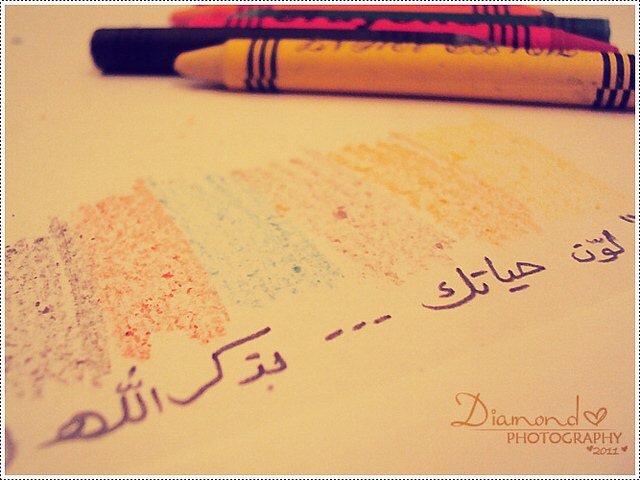 لوّن حياتك --- بذكر الله
Diamond
PHOTOGRAPHY
2011